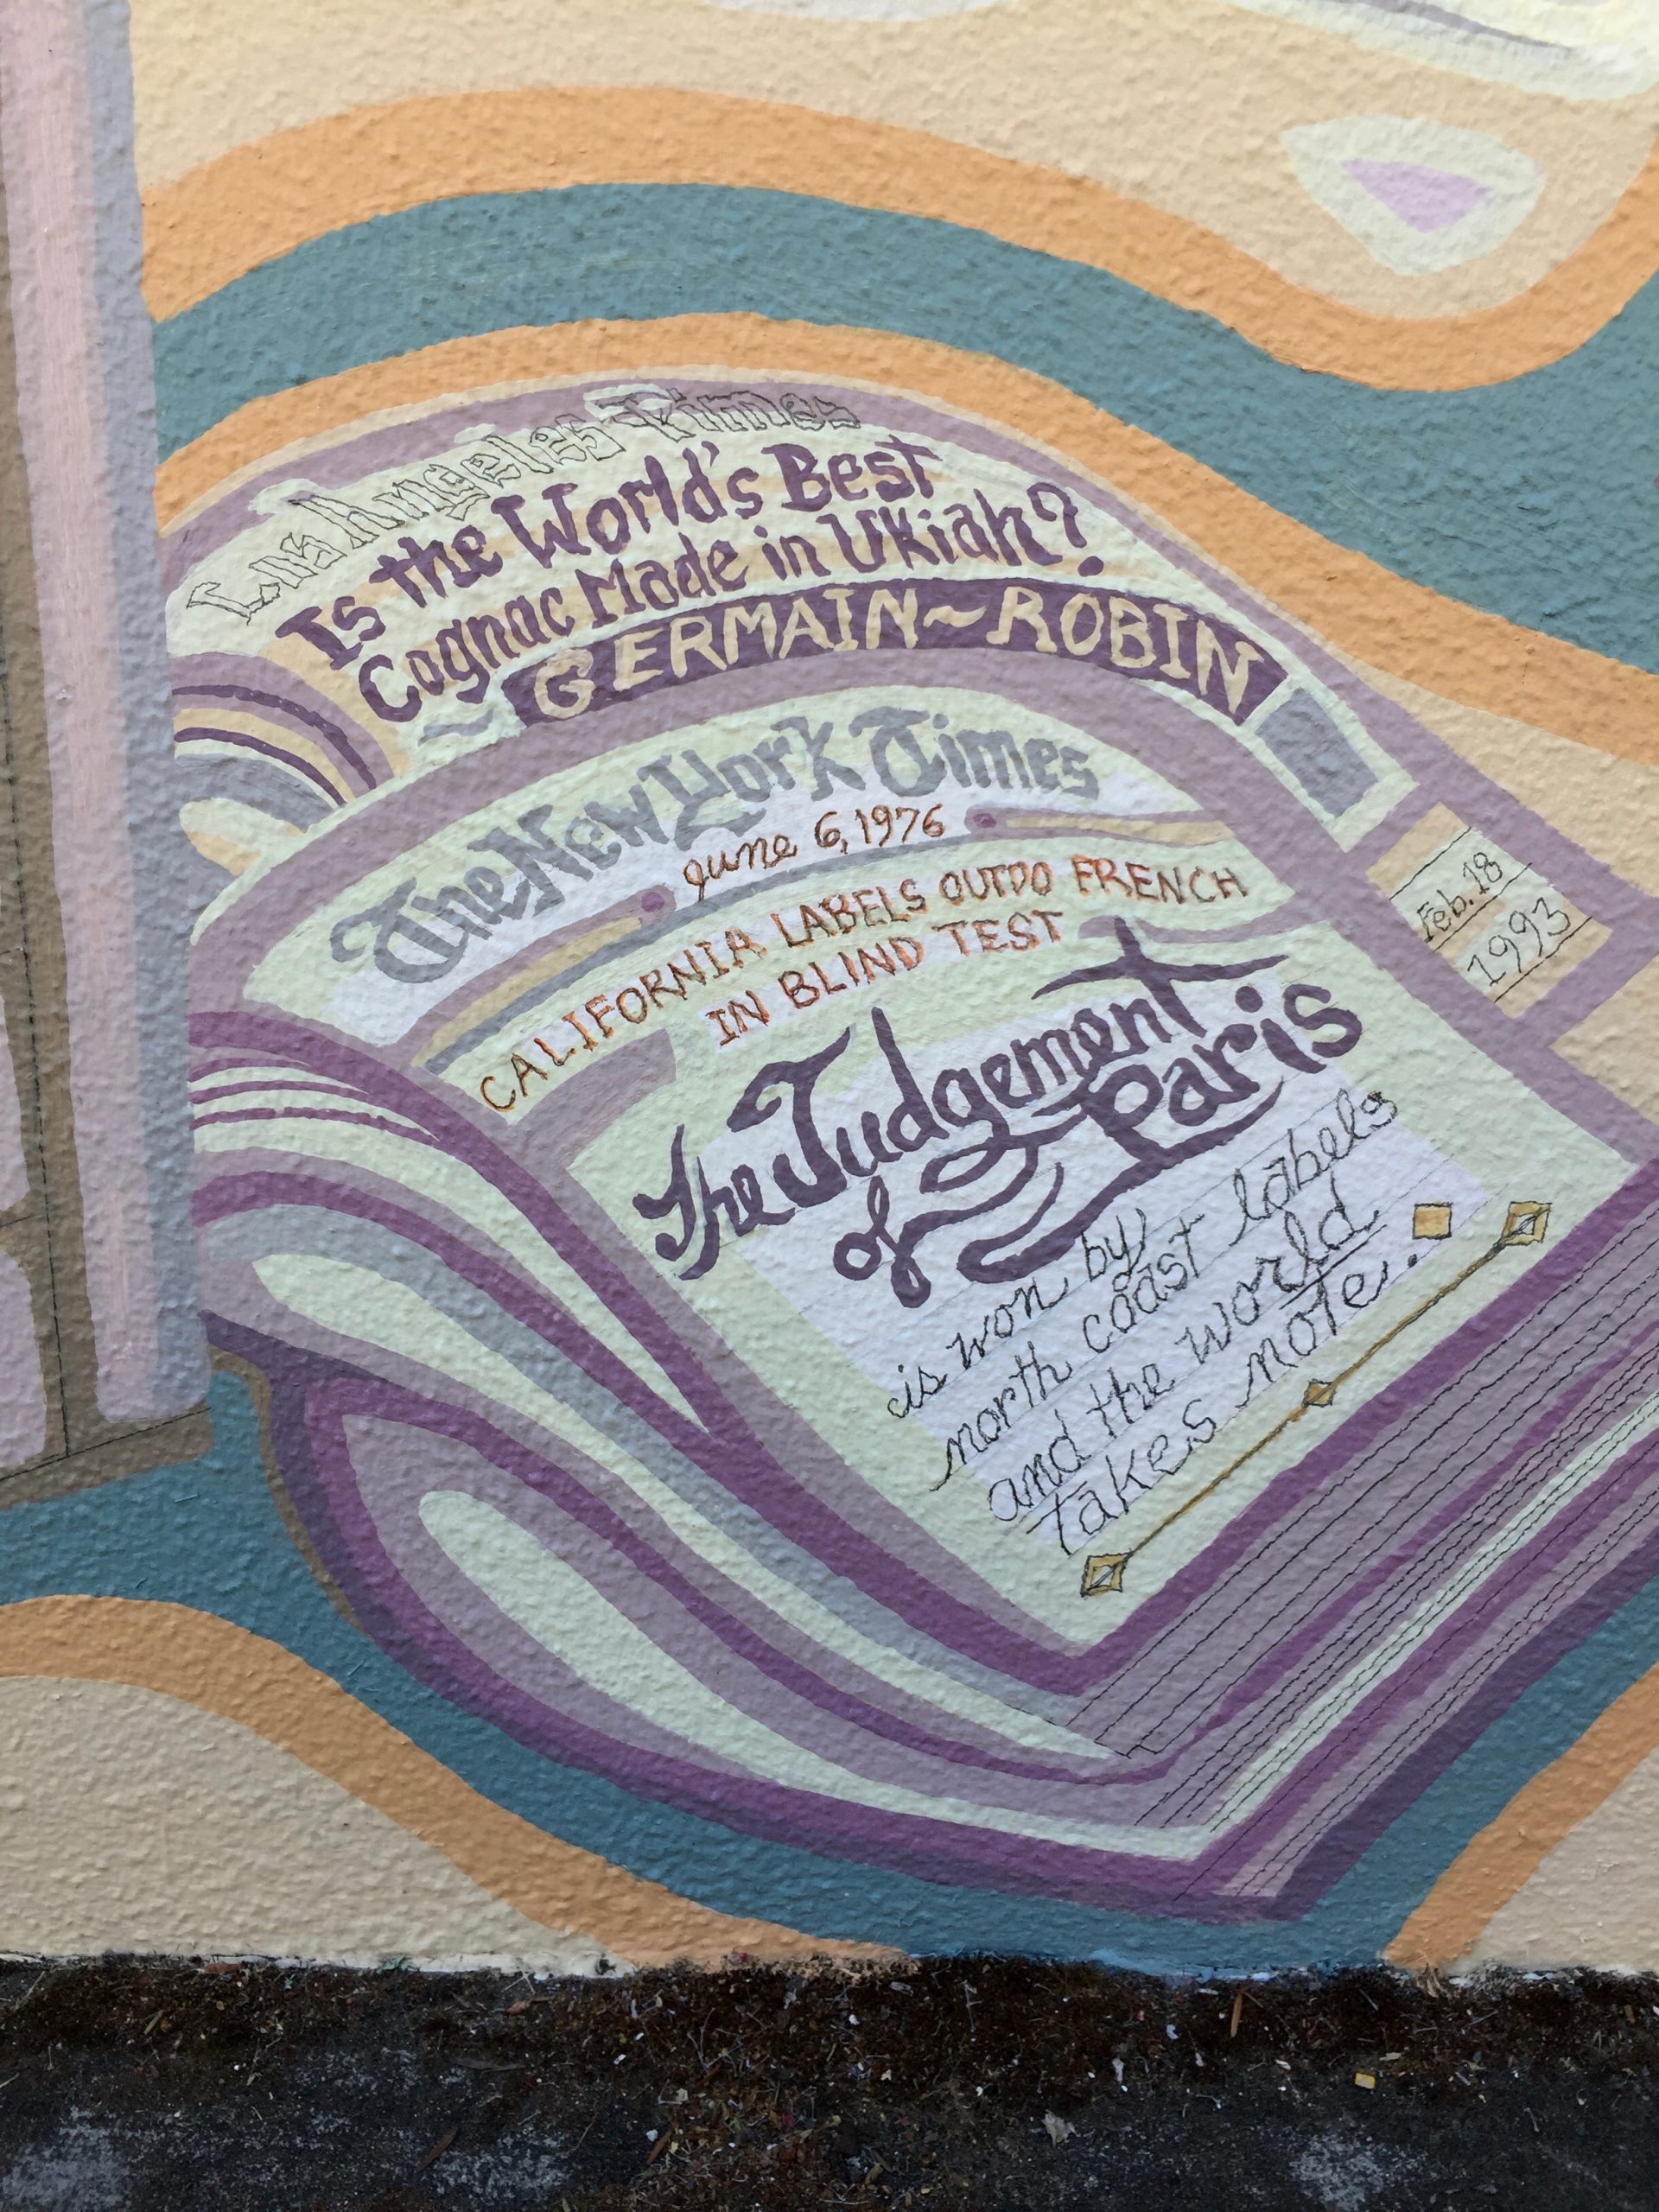 Los Angeles Times
Is the World's Best
Cognac Made in Ukiah?
~GERMAIN~ROBIN
The New York Times
June 6, 1976
CALIFORNIA LABELS OUTDO FRENCH
IN BLIND TEST
The Judgement
of Paris
is won by
north coast labels
and the world
takes note.
Feb. 18
1993